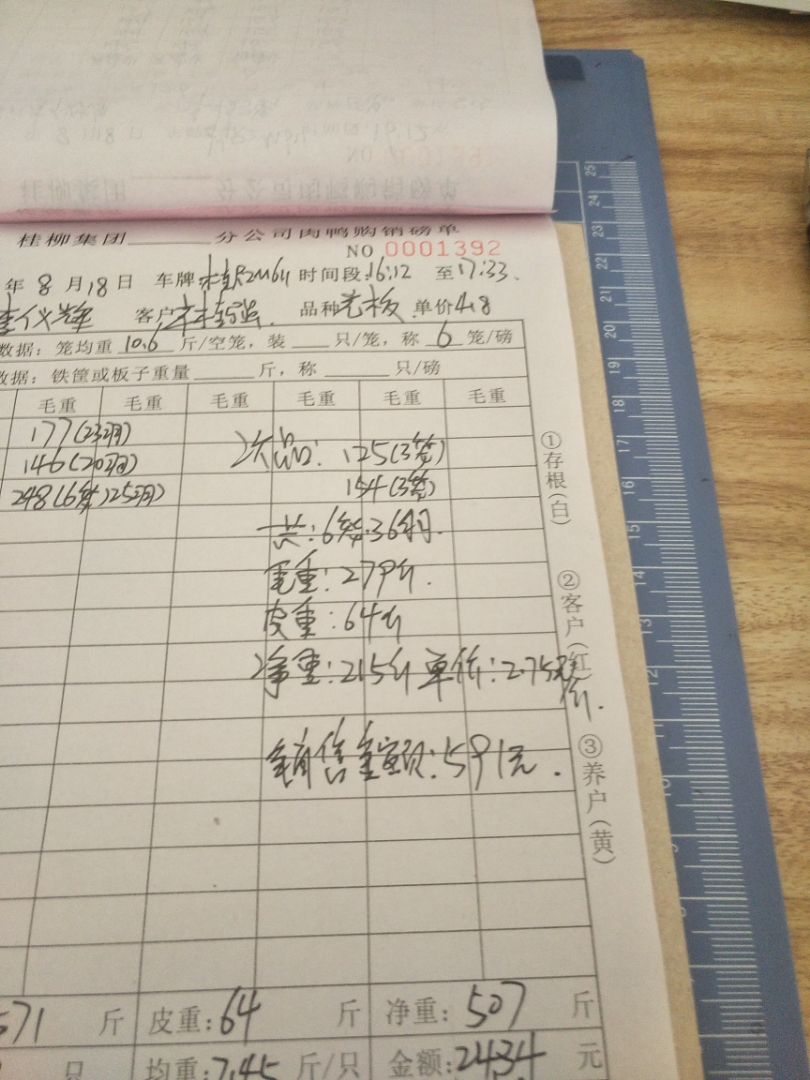 桂柳集团 分公司肉鸭购销磅单
NO 0001392
年 8 月 18 日 车牌 时间段:16:12 至17:33.
客户 品种 老板 单价4.8
数据: 笼均重 10.6 斤/空笼, 装 只/笼, 称 6 笼/磅
数据: 铁筐或板子重量 斤, 称 只/磅
毛重 毛重 毛重 毛重 毛重 毛重
177(23羽)
146(20羽) 次品: 125(3笼)
248(6笼)25羽) 154(3笼)
共: 6笼.36羽.
毛重: 279斤.
皮重: 64斤
净重: 215斤 单价: 2.75元/斤.
销售金额: 591元.
①存根(白)
②客户(红)
③养户(黄)
571 斤 皮重: 64 斤 净重: 507 斤
只 均重: 7.45 斤/只 金额: 2434 元
25
24
23
22
21
20
19
18
17
16
15
14
13
12